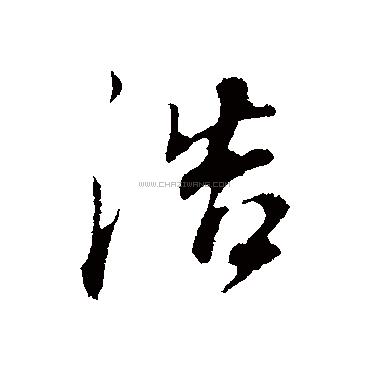 浩
WWW.CHAZIWANG.COM